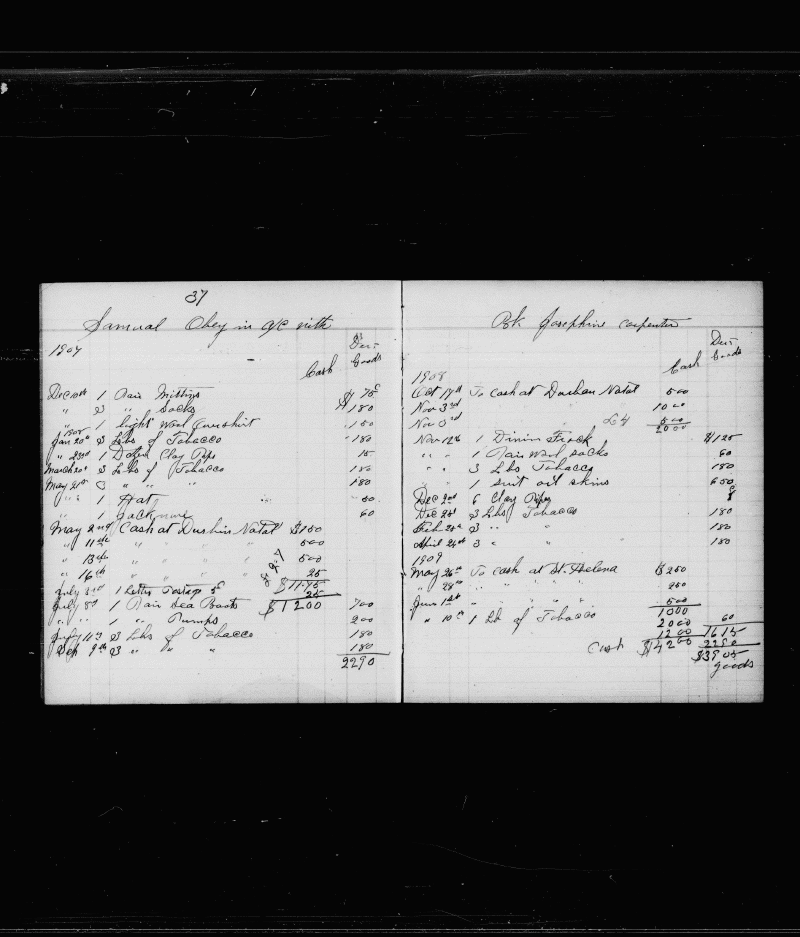 37
Samual Obey in a/c with
1907
Deu-
Cash Goods
Dec 10th 1 Pair Mittigs $ 75c
" 3 " Socks 180
" 1 light Wool Overshirt 150
1908
Jan 20th 3 Lbs of Tobacco 180
" 23rd 1 Dozen Clay Pips 15
March 20th 3 Lbs of Tobacco 180
May 2nd 3 " " " 180
" " 1 Hat 50
" 1 Jack 60
May 2nd Cash at Durbin Natal $150
" 11th " " " " 500
" 13th " " " " 500
" 16th " " " " 25
$11.75
July 3rd 1 Letter Postage 5c 25
July 8th 1 Pair Sea Boots $1200 700
" " 1 " Pumps 200
July 11th 3 Lbs of Tobacco 180
Sep 9th 3 " " " 180
2290
Bk Josephine Carpenter
Deu-
Cash Goods
1908
Oct 17th To Cash at Durban Natal 500
Nov 3rd 1000
Nov 3rd £4 500
2000
Nov 12th 1 Dinim Frock $125
" " 1 Pair Wool Socks 60
" " 3 Lbs Tobacco 180
" " 1 suit oil skins 600
Dec 2nd 6 Clay Pipes
Dec 23d 3 Lbs Tobacco 180
Feb 24th 3 " " 180
April 24th 3 " " 180
1909
May 26th To cash at St. Helena $250
" 28th " " " " 250
June 1st " " " 500
1000
" 10th 1 Lb of Tobacco 2000 60
1200 1615
Cash $4200 2290
$3905
goods